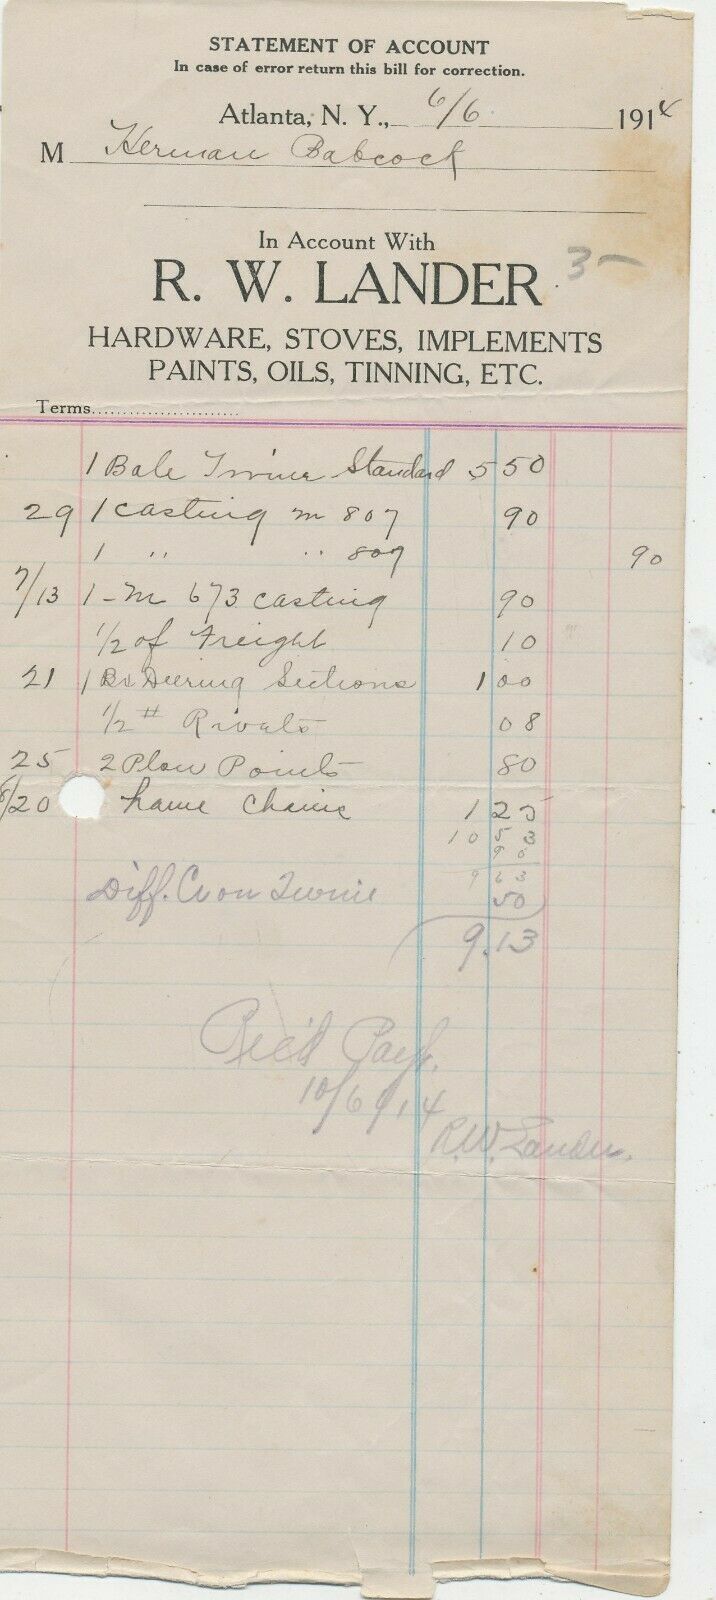 STATEMENT OF ACCOUNT
In case of error return this bill for correction.
Atlanta, N. Y., 6/6 1914
M Herman Babcock
In Account With
R. W. LANDER 3-
HARDWARE, STOVES, IMPLEMENTS
PAINTS, OILS, TINNING, ETC.
Terms........................
1 Bale Twine Standard 5 50
29 1 casting m 807 90
1 " " 809 90
7/13 1 - M 673 casting 90
1/2 of Freight 10
21 1 Bx Deering Sections 1 00
1/2 # Rivets 08
25 2 Plow Points 80
8/20 hame Chains 1 25
10 53
90
9 63
Diff. Cr on Twine 50
9.13
Rec'd Payt.
10/6 914
R.W. Lander.